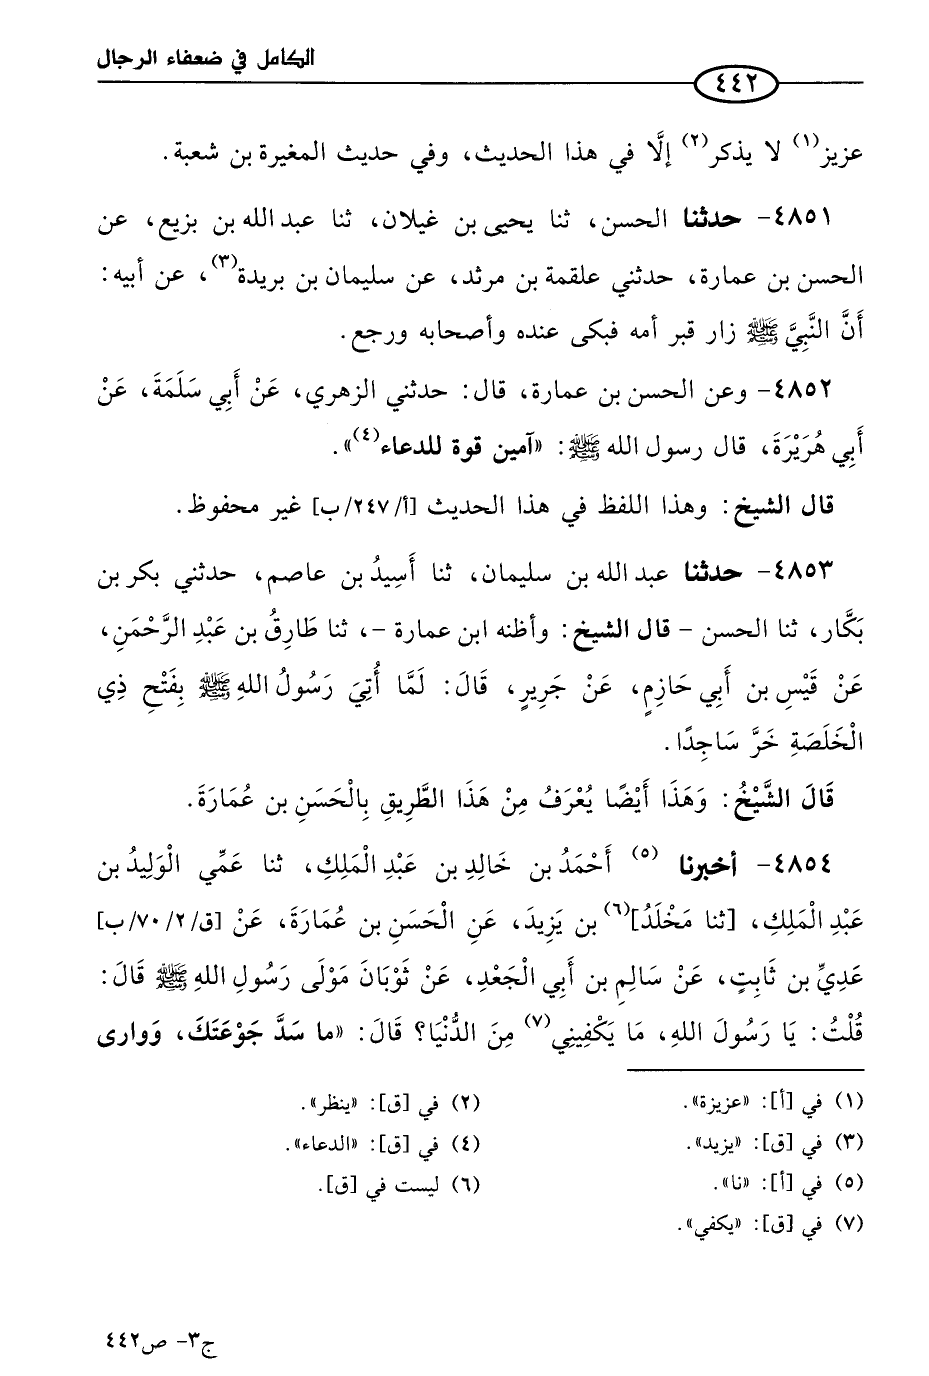 الكامل في ضعفاء الرجال
٤٤٢
عزيز(١) لا يذكر(٢) إلَّا في هذا الحديث، وفي حديث المغيرة بن شعبة.
٤٨٥١- حدثنا الحسن، ثنا يحيى بن غيلان، ثنا عبد الله بن بزيع، عن
الحسن بن عمارة، حدثني علقمة بن مرثد، عن سليمان بن بريدة(٣)، عن أبيه:
أَنَّ النَّبِيَّ ﷺ زار قبر أمه فبكى عنده وأصحابه ورجع.
٤٨٥٢- وعن الحسن بن عمارة، قال: حدثني الزهري، عَنْ أَبِي سَلَمَةَ، عَنْ
أَبِي هُرَيْرَةَ، قال رسول الله ﷺ: «آمين قوة للدعاء(٤)».
قال الشيخ: وهذا اللفظ في هذا الحديث [أ/٢٤٧/ب] غير محفوظ.
٤٨٥٣- حدثنا عبد الله بن سليمان، ثنا أَسِيدُ بن عاصم، حدثني بكر بن
بَكَّار، ثنا الحسن - قال الشيخ: وأظنه ابن عمارة -، ثنا طَارِقُ بن عَبْدِ الرَّحْمَنِ،
عَنْ قَيْسِ بن أَبِي حَازِمٍ، عَنْ جَرِيرٍ، قَالَ: لَمَّا أُتِيَ رَسُولُ اللهِ ﷺ بِفَتْحِ ذِي
الْخَلَصَةِ خَرَّ سَاجِدًا.
قَالَ الشَّيْخُ: وَهَذَا أَيْضًا يُعْرَفُ مِنْ هَذَا الطَّرِيقِ بِالْحَسَنِ بن عُمَارَةَ.
٤٨٥٤- أخبرنا (٥) أَحْمَدُ بن خَالِدِ بن عَبْدِ الْمَلِكِ، ثنا عَمِّي الْوَلِيدُ بن
عَبْدِ الْمَلِكِ، [ثنا مَخْلَدُ](٦) بن يَزِيدَ، عَنِ الْحَسَنِ بن عُمَارَةَ، عَنْ [ق/٢/٧٠/ب]
عَدِيِّ بن ثَابِتٍ، عَنْ سَالِمِ بن أَبِي الْجَعْدِ، عَنْ ثَوْبَانَ مَوْلَى رَسُولِ اللهِ ﷺ قَالَ:
قُلْتُ: يَا رَسُولَ اللهِ، مَا يَكْفِينِي(٧) مِنَ الدُّنْيَا؟ قَالَ: «ما سَدَّ جَوْعَتَكَ، وَوارى
(١) في [أ]: «عزيزة».
(٢) في [ق]: «ينظر».
(٣) في [ق]: «يزيد».
(٤) في [ق]: «الدعاء».
(٥) في [أ]: «نا».
(٦) ليست في [ق].
(٧) في [ق]: «يكفي».
ج٣- ص٤٤٢